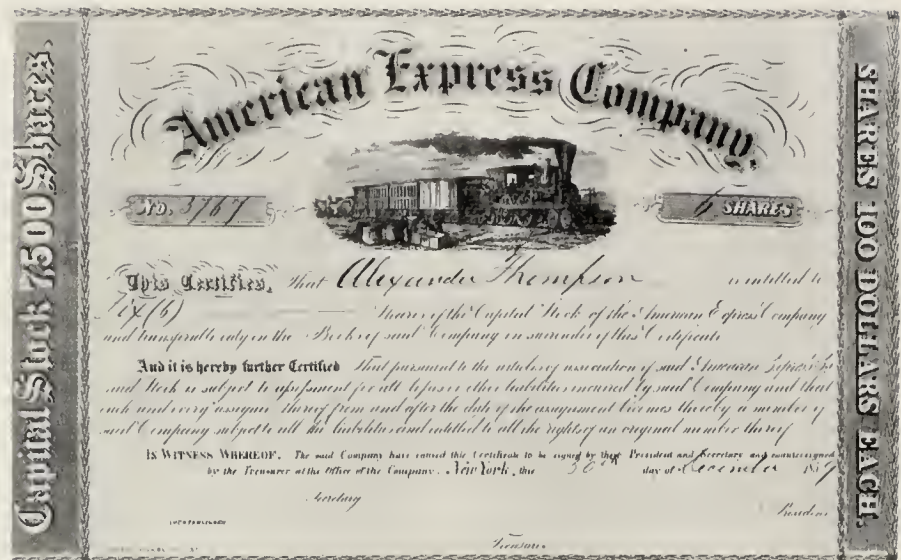 American Express Company.
Capital Stock 7500 Shares.
SHARES 100 DOLLARS EACH.
No. 3767
6 SHARES
This Certifies, That Alexander Thompson is intitled to
Six (6) Shares of the Capital Stock of the American Express Company
and transferable only in the Books of said Company on surrender of this Certificate
And it is hereby further Certified That pursuant to the articles of association of said American Express Co
said Stock is subject to assessment for all losses or other liabilities incurred by said Company and that
each and every assignee thereof from and after the date of the assignment becomes thereby a member of
said Company subject to all the liabilities and intitled to all the rights of an original member thereof
IN WITNESS WHEREOF, The said Company have caused this Certificate to be signed by their President and Secretary and countersigned
by the Treasurer at the Office of the Company, New York, this 30th day of December
Secretary
President
Treasurer